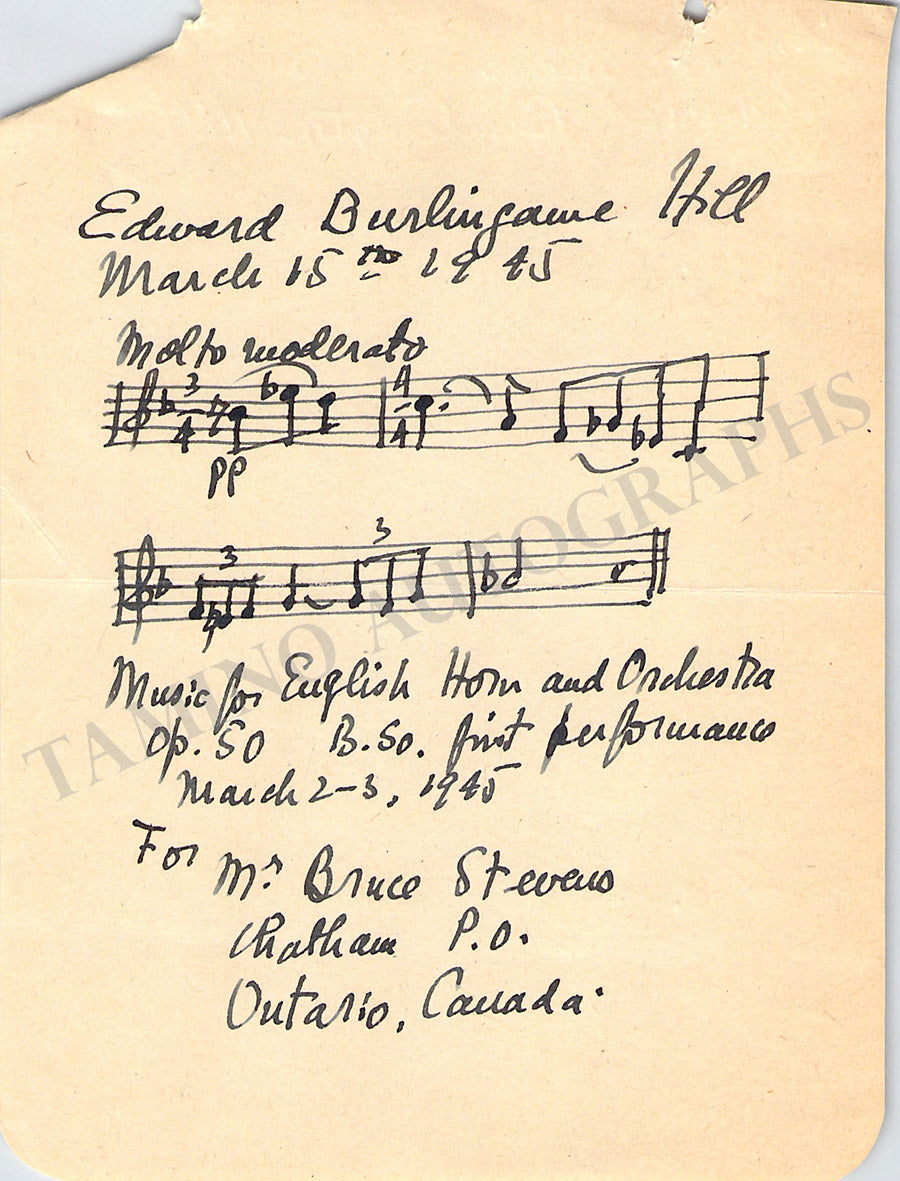 Edward Burlingame Hill
March 15th 1945
Molto moderato
3
4
4
4
pp
3
3
Music for English Horn and Orchestra
Op. 50 B.So. first performance
March 2-3, 1945
For
Mr Bruce Stevens
Chatham P.O.
Ontario, Canada.
TAMINO AUTOGRAPHS